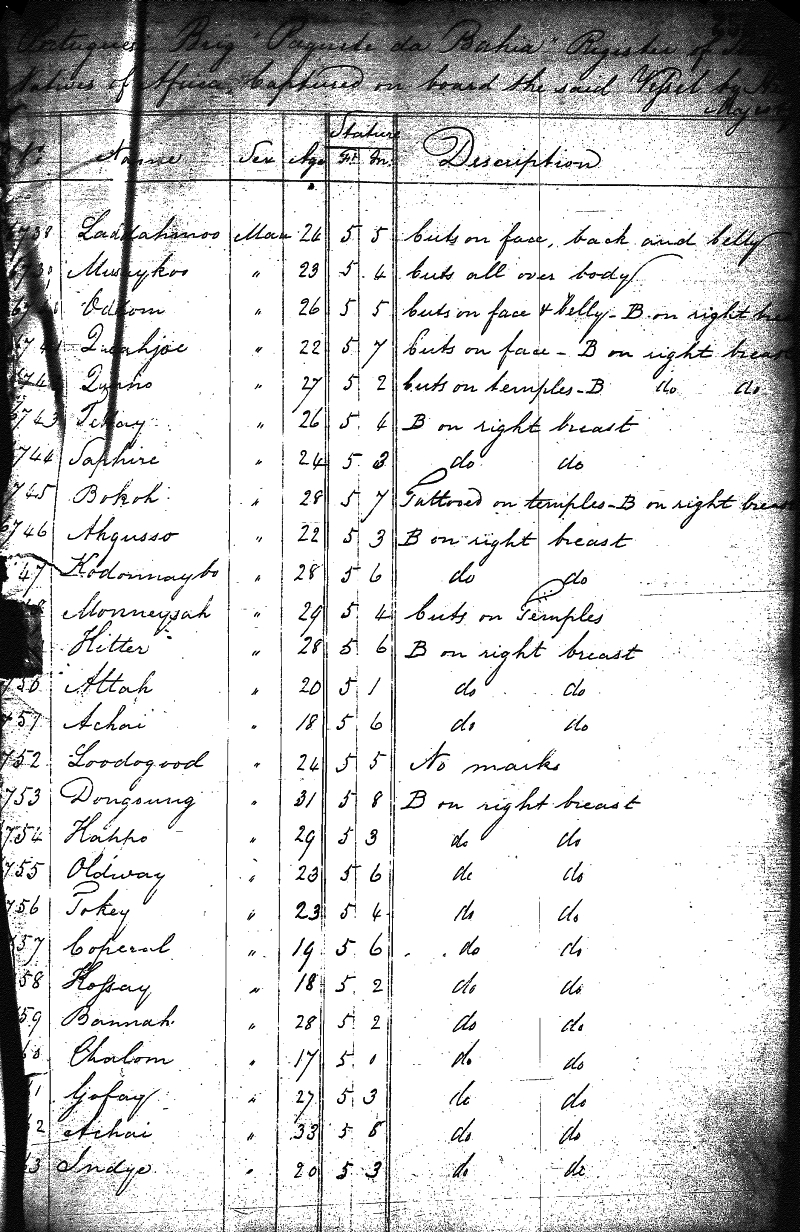 Portuguese Brig "Paquete da Bahia" Register of
Natives of Africa, Captured on board the said Vessel by
Majesty
Stature
No Name Sex Age Ft In. Description
6738 Laddahmoo Man 26 5 5 Cuts on face, back and belly
Musaykoo " 23 5 4 Cuts all over body
Odtom " 26 5 5 Cuts on face & Belly - B on right breast
674 Quahjoe " 22 5 7 Cuts on face - B on right breast
674 Quano " 27 5 2 Cuts on temples - B do do
6743 Tettay " 26 5 4 B on right breast
744 Saphire " 24 5 3 do do
745 Bokoh " 28 5 7 Tattooed on temples - B on right breast
6746 Ahgusso " 22 5 3 B on right breast
47 Kodonnaybo " 28 5 6 do do
Monneysah " 29 5 4 Cuts on Temples
Hitter " 28 5 6 B on right breast
750 Attah " 20 5 1 do do
751 Achai " 18 5 6 do do
752 Loodogood " 24 5 5 No marks
753 Dongoung " 31 5 8 B on right breast
754 Happo " 29 5 3 do do
755 Oldway " 23 5 6 do do
756 Tokey " 23 5 4 do do
757 Coperal " 19 5 6 do do
58 Hossay " 18 5 2 do do
59 Bannah " 28 5 2 do do
60 Chalom " 17 5 1 do do
1 Gofay " 27 5 3 do do
2 Achai " 33 5 8 do do
3 Indyo " 20 5 3 do do